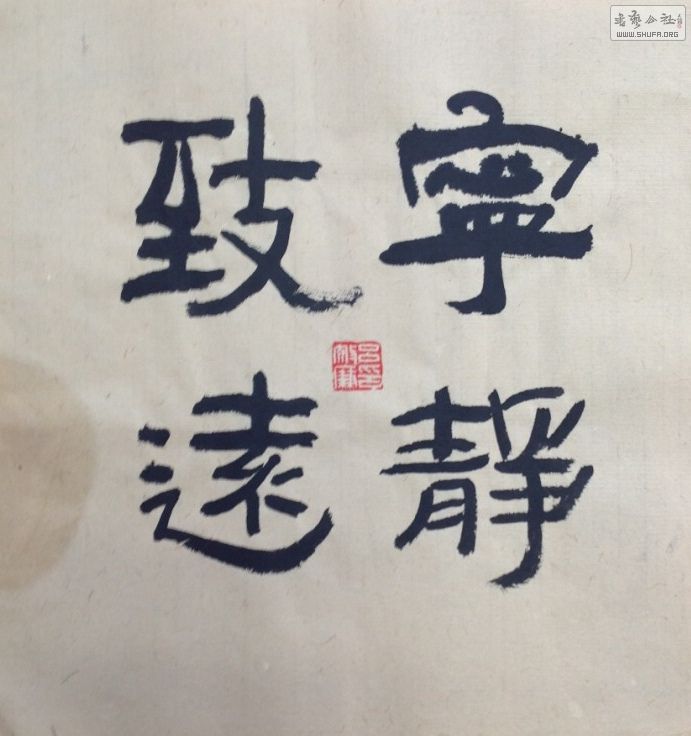 寧靜
致遠
書藝公社
WWW.SHUFA.ORG